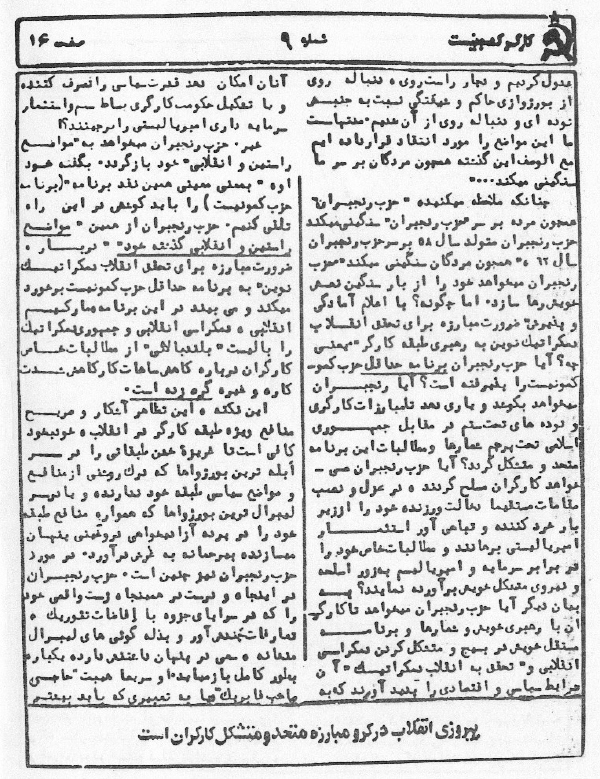 کارگر کمونیست
شماره ۹
صفحه ۱۶
عدول کردیم و دچار راست روی و دنباله روی
از بورژوازی حاکم و خفتگی نسبت به جنبش
توده ای و دنباله روی از آن شدیم. مدتهاست
ما این مواضع را مورد انتقاد قرار داده ایم
مع الوصف این گذشته همچون مردگان بر سر ما
سنگینی میکند ۰۰۰"
چنانکه ملاحظه میکنید "حزب رنجبران"
همچون مرده بر سر "حزب رنجبران" سنگینی میکند
حزب رنجبران متولد سال ۵۸ بر سر حزب رنجبران
سال ۶۲، "همچون مردگان سنگینی میکند" حزب
رنجبران میخواهد خود را از بار سنگین نعش
خویش رها سازد. اما چگونه؟ با اعلام آمادگی
و پذیرش "ضرورت مبارزه برای تحقق انقلاب
دمکراتیک نوین به رهبری طبقه کارگر" یعنی
چه؟ آیا حزب رنجبران برنامه حداقل حزب کمو-
نیست را پذیرفته است؟ آیا رنجبران
میخواهد بکوشد و یاری دهد تا مبارزات کارگری
و توده های تحت ستم در مقابل جمهوری
اسلامی تحت پرچم شعارها و مطالبات این برنامه
متحد و متشکل گردد؟ آیا حزب رنجبران می -
خواهد کارگران مسلح گردند و در عزل و نصب
مقامات مستقیما دخالت ورزنده خود را از زیر
بار خرد کننده و تباهی آور استثمار
امپریالیستی برهانند و مطالبات خاص خود را
در برابر سرمایه و امپریالیسم به زور اسلحه
و نیروی متشکل خویش برآورده نمایند؟ به
بیان دیگر آیا حزب رنجبران میخواهد تا کارگر
ان با رهبری خویش و شعارها و برنامه
مستقل خویش در بسیج و متشکل کردن دمکراسی
انقلابی و "تحقق به انقلاب دمکراتیک" آن
شرایط سیاسی و اقتصادی را پدید آورند که به
آنان امکان دهد قدرت سیاسی را تصرف کننده
و با تشکیل حکومت کارگری بساط ستم و استثمار
سرمایه داری امپریالیستی را برچینند؟!
خیر. حزب رنجبران میخواهد به "مواضع
راستین و انقلابی" خود بازگردد. بگفته خود
او، "بمعنی معینی همین نقد برنامه" (برنامه
حزب کمونیست) را باید کوشش در این راه
تلقی کنیم. حزب رنجبران از همین "مواضع
راستین و انقلابی گذشته خود" "درباره
ضرورت مبارزه برای تحقق انقلاب دمکراتیک
نوین" به برنامه حداقل حزب کمونیست برخورد
میکند و می بیند در این برنامه مارکسیسم
انقلابی، دمکراسی انقلابی و جمهوری دمکراتیک
را با لیست "بلند بالائی" از مطالبات خاص
کارگران درباره کاهش ساعات کار کاهش شدت
کار، و غیره گره زده است.
این نکته، این تظاهر آشکار و صریح
منافع ویژه طبقه کارگر در انقلاب، خودبخود
کافی است تا غریزه خفن طبقاتی را در سر
ابله ترین بورژواها که درک روشنی از منافع
و مواضع سیاسی طبقه خود ندارند و یا در سر
لیبرال ترین بورژواها که همواره منافع طبقه
خود را در پرده آزادیخواهی دروغینی پنهان
میسازند بیرحمانه به غرش درآورد. در مورد
حزب رنجبران نیز چنین است. حزب رنجبران
در اینجا، و درست در همینجا، زشت واقعی خود
را که در سراپای جزوه با افاضات تئوریک،
تعارفات چندش آور و بذله گوئی های لیبرال
منشانه، سعی در پنهان داشتنش دارد یکباره
بطور کامل باز مینماید و سریعا هیبت "حاجی
صاحب فابریک"ها به تعبیری که باید بیشتر
پیروزی انقلاب در گرو مبارزه متحد و متشکل کارگران است